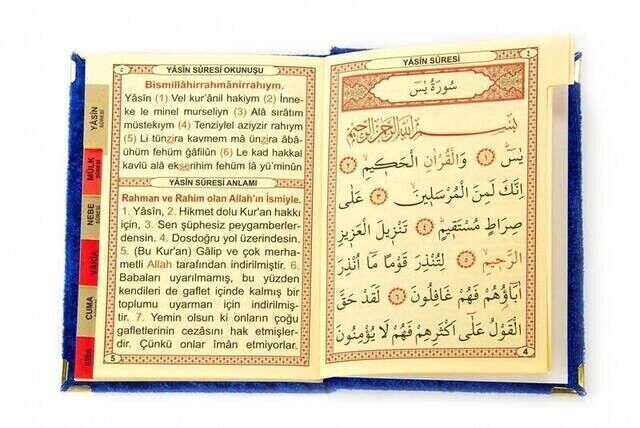 YÂSİN SÛRESİ OKUNUŞU
Bismillâhirrahmânirrahıym.
Yâsîn (1) Vel kur'ânil hakiym (2) İnne-
ke le minel murseliyn (3) Alâ sıratım
müstekıym (4) Tenziylel aziyzir rahıym
(5) Li tünzira kavmem mâ ünzira âbâ-
ühüm fehüm ğâfilûn (6) Le kad hakkal
kavlü alâ ekserihim fehüm lâ yü'minûn
YÂSİN SÛRESİ ANLAMI
Rahman ve Rahim olan Allah'ın İsmiyle.
1. Yâsîn, 2. Hikmet dolu Kur'an hakkı
için, 3. Sen şüphesiz peygamberler-
densin. 4. Dosdoğru yol üzerindesin.
5. (Bu Kur'an) Gâlip ve çok merha-
metli Allah tarafından indirilmiştir. 6.
Babaları uyarılmamış, bu yüzden
kendileri de gaflet içinde kalmış bir
toplumu uyarman için indirilmiş-
tir. 7. Yemin olsun ki onların çoğu
gafletlerinin cezasını hak etmişler-
dir. Çünkü onlar îmân etmiyorlar.
5
YÂSİN
SÛRESİ
MÜLK
SÛRESİ
NEBE
SÛRESİ
VÂKIA
CUMA
KISA
YÂSİN SÛRESİ
٤
سُورَةُ يٰسٓ
بِسْمِ اللّٰهِ الرَّحْمٰنِ الرَّحِيمِ
يٰسٓ ﴿١﴾ وَالْقُرْاٰنِ الْحَكٖيمِ ﴿٢﴾
اِنَّكَ لَمِنَ الْمُرْسَلٖينَ ﴿٣﴾ عَلٰى
صِرَاطٍ مُسْتَقٖيمٍ ﴿٤﴾ تَنْزٖيلَ الْعَزٖيزِ
الرَّحٖيمِ ﴿٥﴾ لِتُنْذِرَ قَوْمًا مَٓا اُنْذِرَ
اٰبَٓاؤُ۬هُمْ فَهُمْ غَافِلُونَ ﴿٦﴾ لَقَدْ حَقَّ
الْقَوْلُ عَلٰٓى اَكْثَرِهِمْ فَهُمْ لَا يُؤْمِنُونَ
4